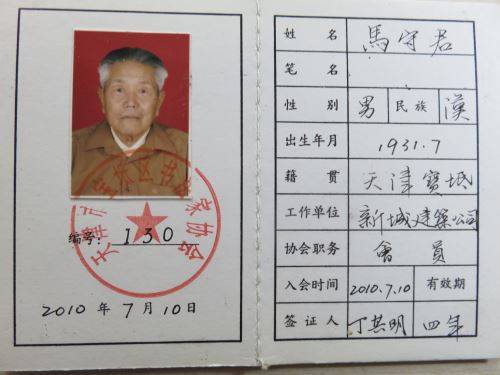 天津市 区书 家协会
编号: 130
2010 年 7 月 10 日
姓 名 馬守君
笔 名
性 别 男 民族 漢
出生年月 1931.7
籍 贯 天津寶坻
工作单位 新城建築公司
协会职务 會員
入会时间 2010.7.10 有效期
签证人 丁其明 四年